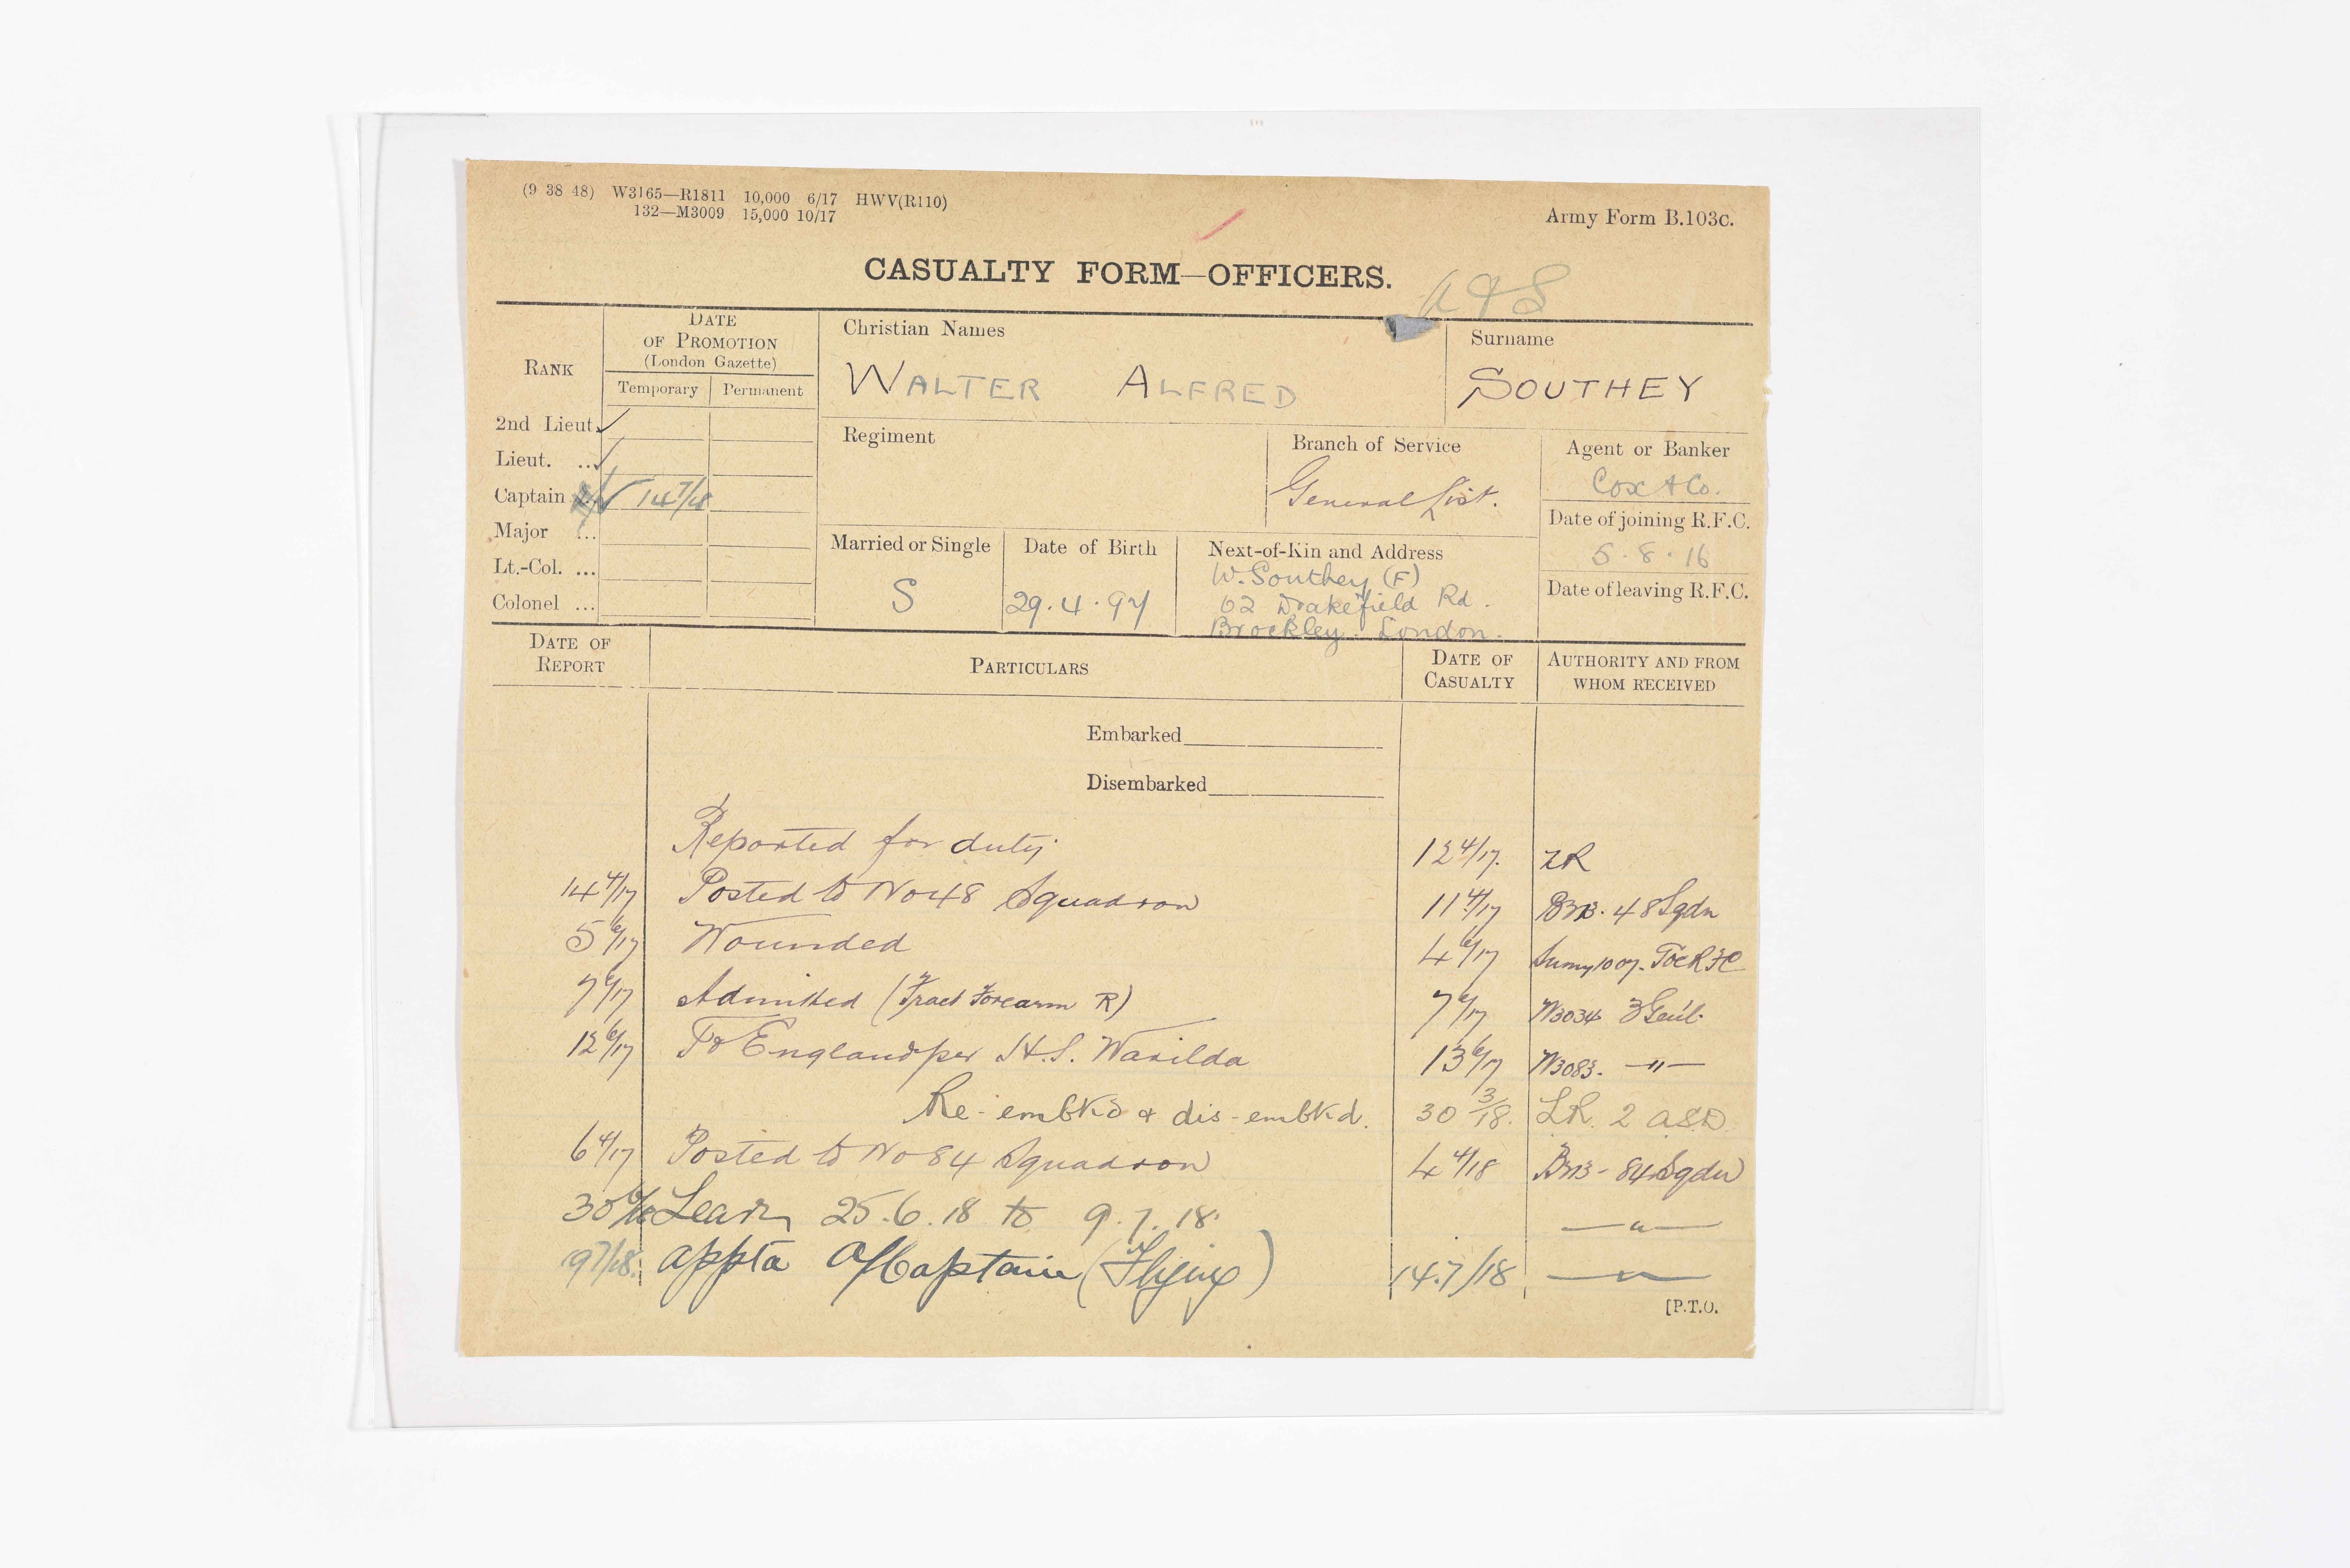 (9 38 48) W3165—R1811 10,000 6/17 HWV(R110)
132—M3009 15,000 10/17
Army Form B.103c.
CASUALTY FORM—OFFICERS.
RANK
DATE OF PROMOTION (London Gazette)
Temporary Permanent
Christian Names
WALTER ALFRED
Surname
SOUTHEY
2nd Lieut. ✓
Lieut. ... ✓
Captain ... ✓ 14 7/18
Major ...
Lt.-Col. ...
Colonel ...
Regiment
Branch of Service
General List.
Agent or Banker
Cox & Co.
Date of joining R.F.C.
5.8.16
Date of leaving R.F.C.
Married or Single
S
Date of Birth
29.4.97
Next-of-Kin and Address
W. Southey (F)
62 Drakefield Rd.
Brockley. London.
DATE OF REPORT PARTICULARS DATE OF CASUALTY AUTHORITY AND FROM WHOM RECEIVED
Embarked
Disembarked
Reported for duty 12 4/17. ZR
14 4/17 Posted to No 48 Squadron 11 4/17 B213. 48 Sqdn
5 6/17 Wounded 4 6/17
7 6/17 Admitted (Fract Forearm R) 7 6/17 W3034 3 Genl.
12 6/17 To England per H.S. Warilda 13 6/17 W3083. —"—
Re-embkd & dis-embkd. 30 3/18. LR. 2 ASD
6 4/17 Posted to No 84 Squadron 4 4/18 B213 - 84 Sqdn
30 6/18 Leave 25.6.18 to 9.7.18. —"—
19 7/18. Appta A/Captain (Flying) 14.7/18 —"—
[P.T.O.